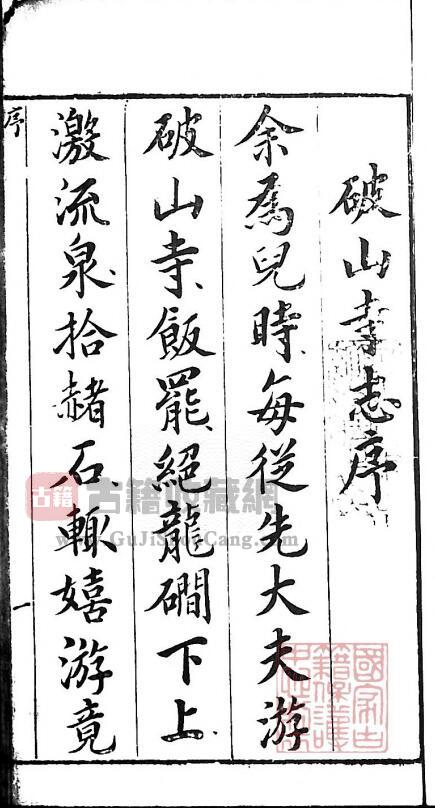 破山寺志序
余爲兒時每從先大夫游
破山寺飯罷絕龍磵下上
激流泉拾赭石輙嬉游竟
序
一
古籍
古籍收藏網
www.GuJiShouCang.com
國家古籍保護